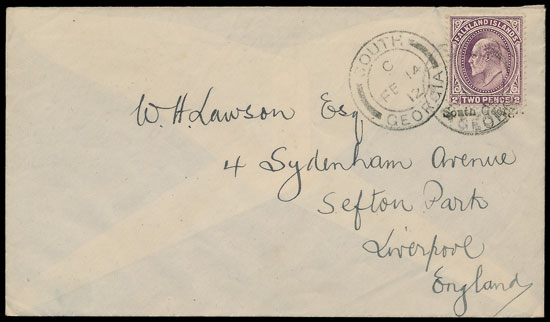 SOUTH GEORGIA
C
FE 14
12
FALKLAND ISLANDS
2 TWO PENCE 2
South Georgia.
W. H. Lawson Esq.
4 Sydenham Avenue
Sefton Park
Liverpool
England